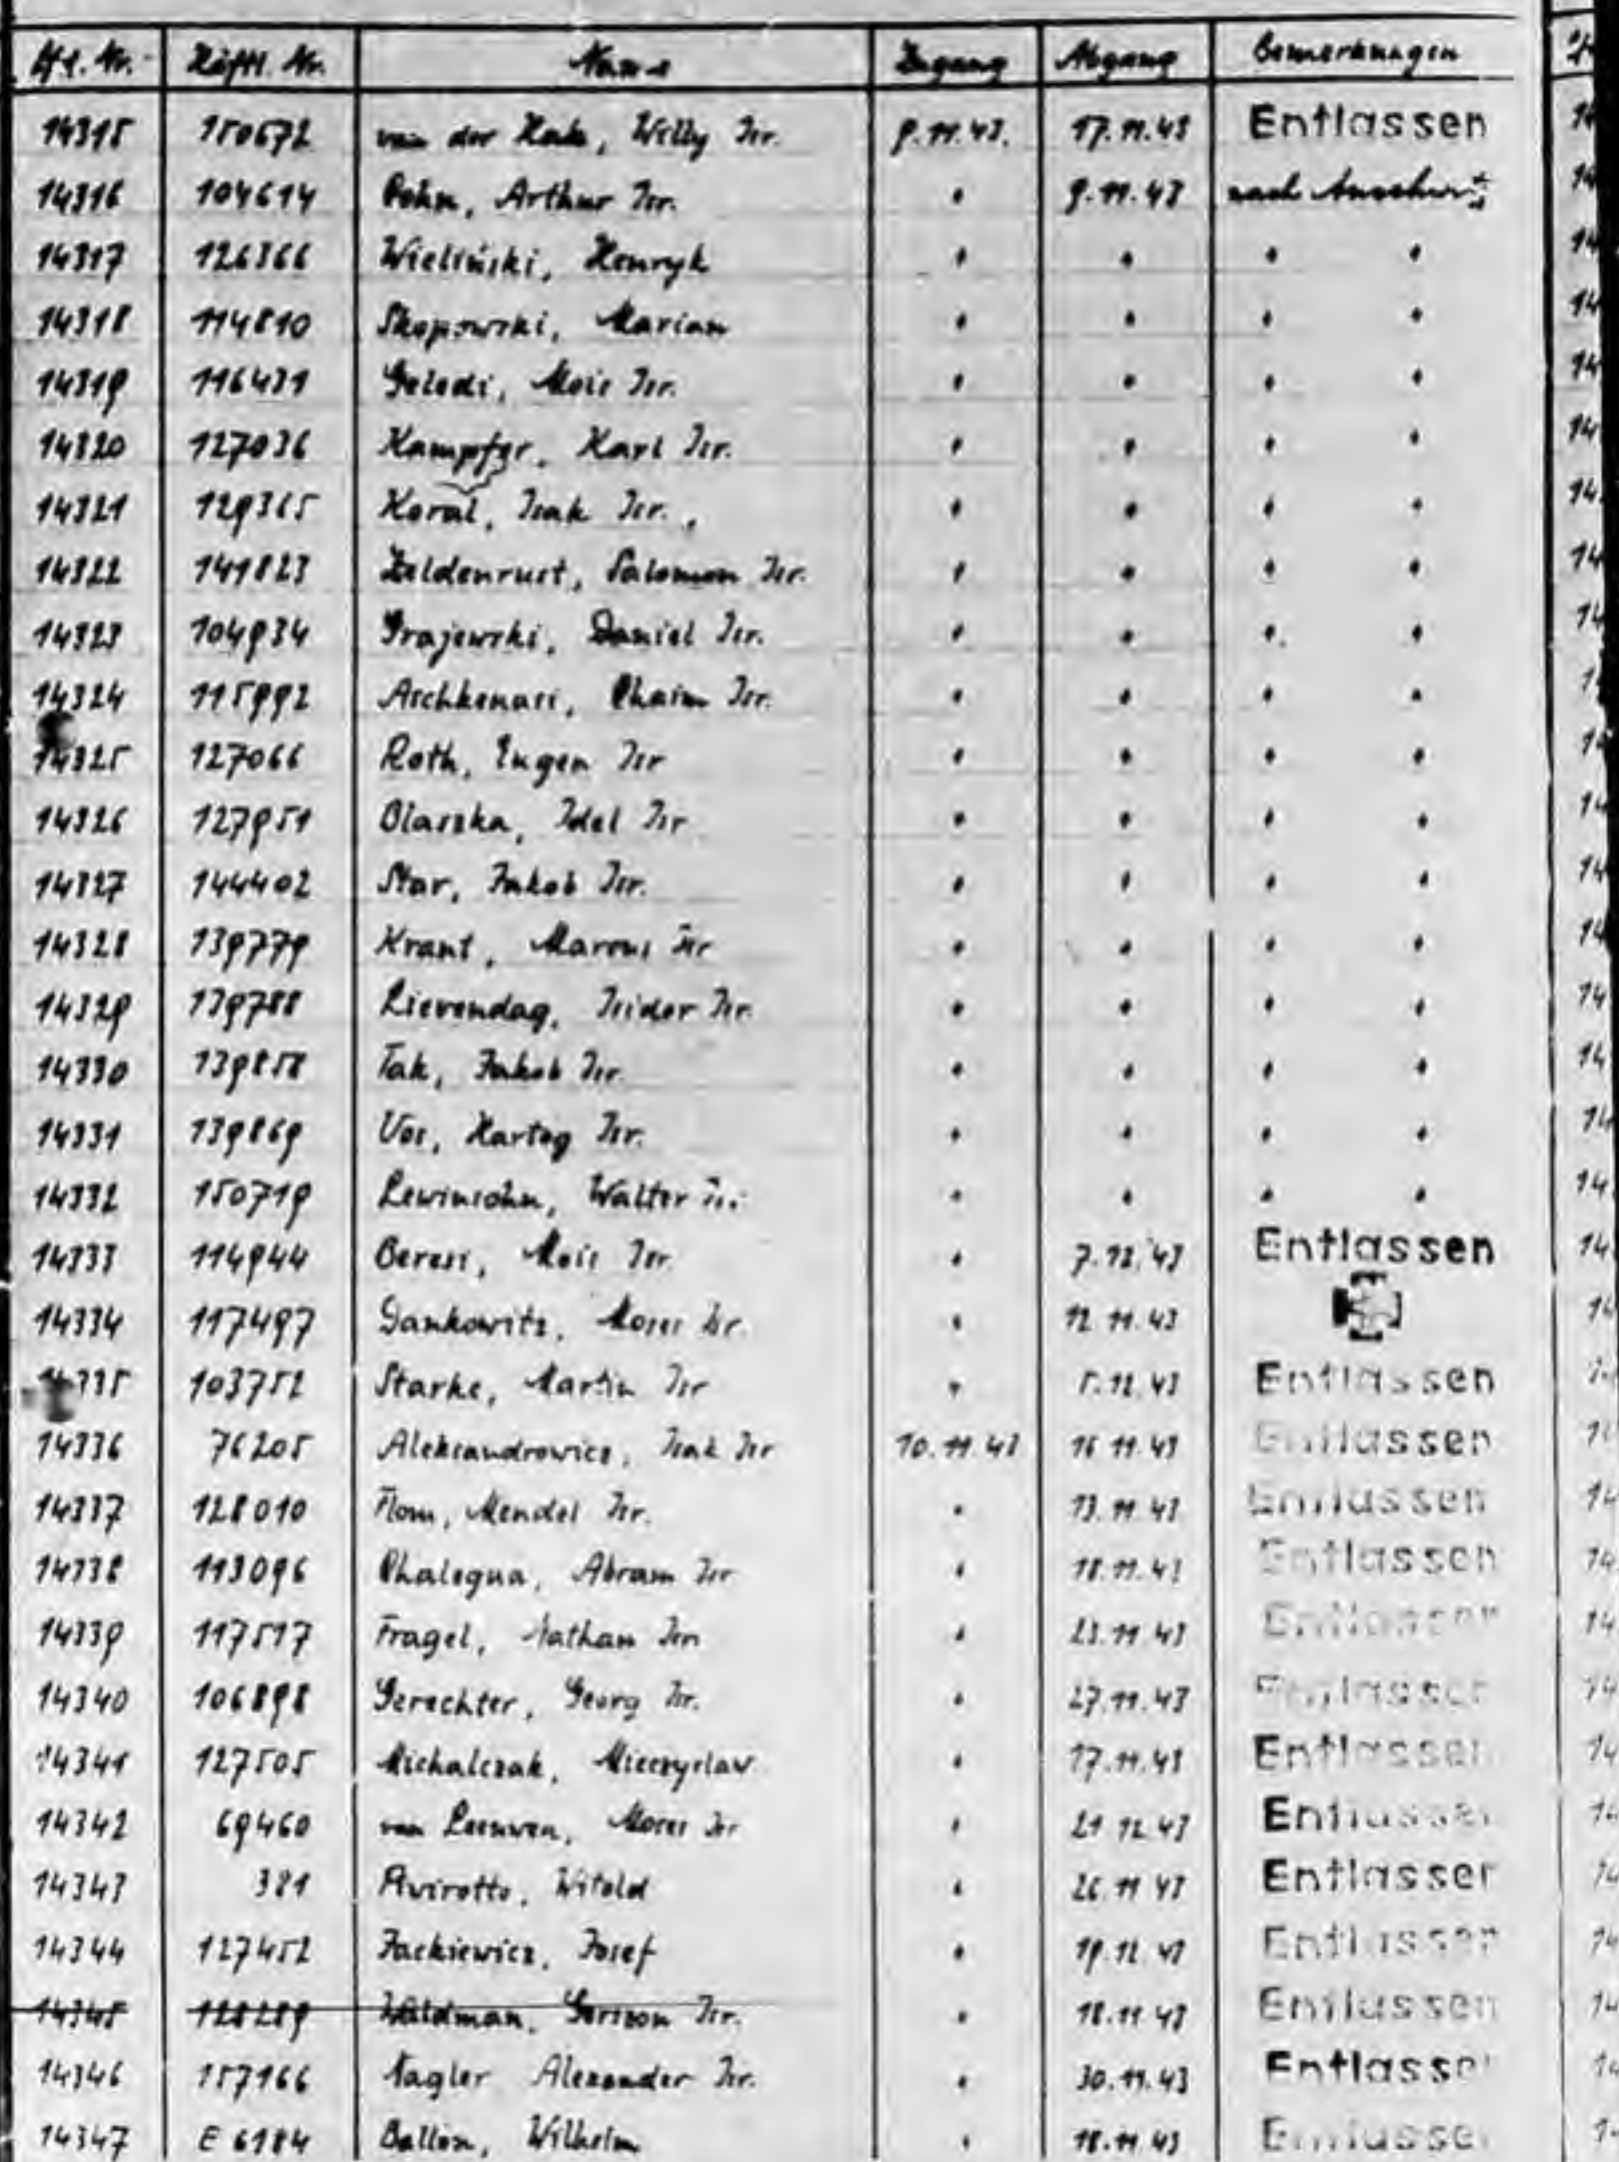 Lfd. Nr. Häftl. Nr. Name Zugang Abgang Bemerkungen
14315 150672 van der Hak, Willy Isr. 9.11.43. 17.11.43 Entlassen
14316 104614 Böhm, Arthur Isr. " 9.11.43 nach Auschwitz
14317 126366 Wieliński, Henryk " " " "
14318 114810 Skopowski, Marian " " " "
14319 116431 Geledi, Mois Isr. " " " "
14320 127036 Kampfer, Karl Isr. " " " "
14321 129365 Koral, Isak Isr. " " " "
14322 141823 Zeldenrust, Salomon Isr. " " " "
14323 104934 Grajewski, Daniel Isr. " " " "
14324 115992 Aschkenasi, Chaim Isr. " " " "
14325 127066 Roth, Eugen Isr " " " "
14326 127951 Olaszka, Idel Isr " " " "
14327 144402 Star, Jakob Isr. " " " "
14328 139779 Krant, Marcus Isr " " " "
14329 139788 Lievendag, Isidor Isr. " " " "
14330 139858 Tak, Jakob Isr. " " " "
14331 139869 Vos, Hartog Isr. " " " "
14332 150719 Lewinsohn, Walter Isr. " " " "
14333 114944 Beresi, Mois Isr. " 7.12.43 Entlassen
14334 117497 Gankowitz, Moses Isr. " 12.11.43
14335 103752 Starke, Martin Isr " 5.12.43 Entlassen
14336 76205 Aleksandrowicz, Isak Isr 10.11.43 16.11.43 Entlassen
14337 128010 Flom, Mendel Isr. " 13.11.43 Entlassen
14338 113096 Chalegua, Abram Isr " 18.11.43 Entlassen
14339 117517 Fragel, Nathan Isr. " 23.11.43 Entlassen
14340 106898 Gerechter, Georg Isr. " 27.11.43 Entlassen
14341 127505 Michalczak, Mieczyslaw " 17.11.43 Entlassen
14342 69460 van Leeuwen, Moses Isr " 21.12.43 Entlassen
14343 381 Witold " 26.11.43 Entlassen
14344 127452 Jackiewicz, Josef " 19.12.43 Entlassen
14345 128289 Waldman, Gerszon Isr. " 18.11.43 Entlassen
14346 157166 Nagler Alexander Isr. " 30.11.43 Entlassen
14347 E 6184 Ballon, Wilhelm " 18.11.43 Entlassen